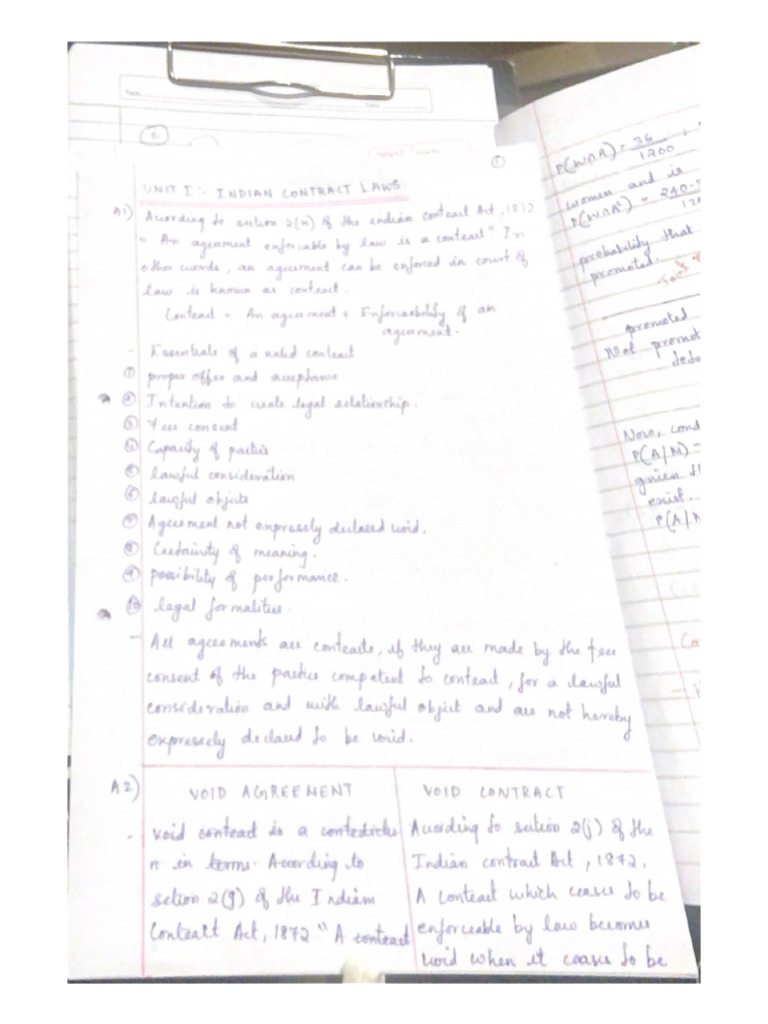 2
1
UNIT I :- INDIAN CONTRACT LAWS
A1) According to section 2(h) of the indian contract Act, 1872
" An agreement enforceable by law is a contract" In
other words, an agreement can be enforced in court of
law is known as contract.
Contract = An agreement + Enforceability of an
agreement.
- Essentials of a valid contract
1 proper offer and acceptance.
2 Intention to create legal relationship.
3 Free consent
4 Capacity of parties
5 lawful consideration
6 lawful objects
7 Agreement not expressely declared void.
8 Certainity of meaning.
9 possibility of performance.
10 legal formalities.
- All agreements are contracts, if they are made by the free
consent of the parties competent to contract, for a lawful
consideration and with lawful object and are not hereby
expressely declared to be void.
A2) VOID AGREEMENT
- void contract is a contradictio
n in terms. According to
section 2(g) of the Indian
Contract Act, 1872 " A contract
VOID CONTRACT
According to section 2(j) of the
Indian contract Act, 1872.
A contract which ceases to be
enforceable by law becomes
void when it ceases to be
P(W∩A) = 36
1200
women and is
P(W∩A') = 240-
probability that
promoted.
promoted
Not promot
Now, cond
P(A/M) =
given th
exist.
P(A/M